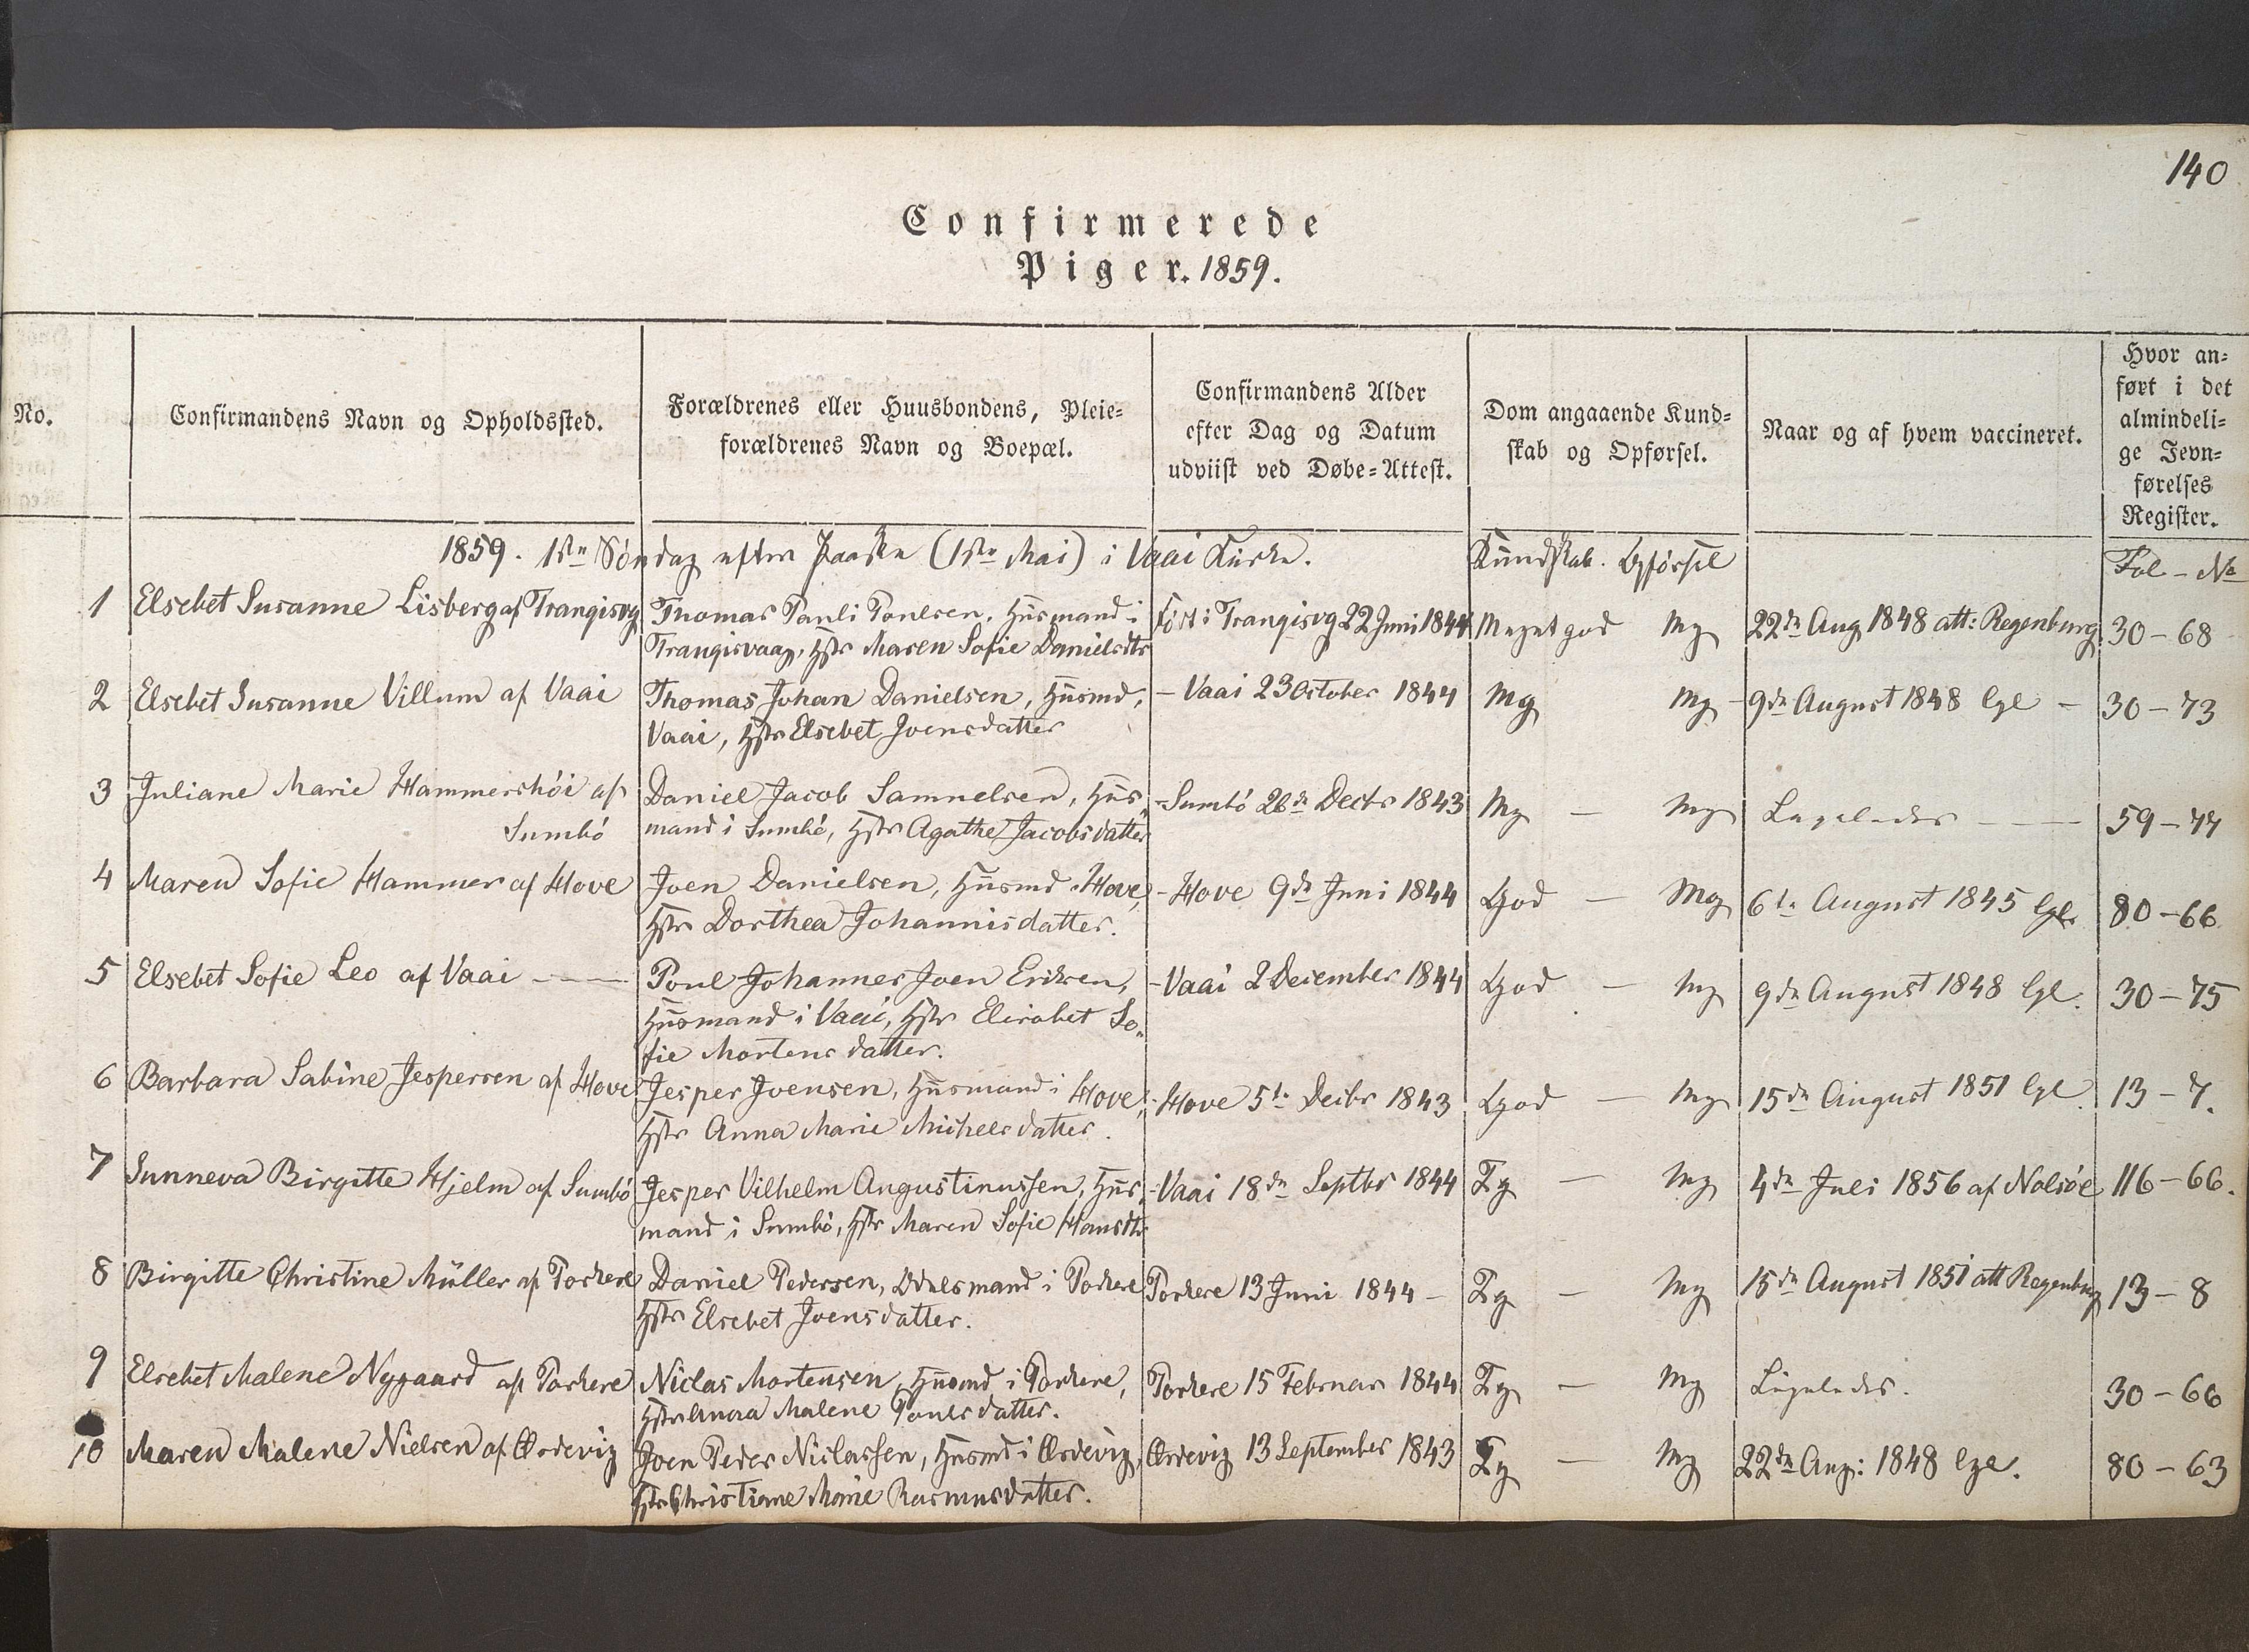 140
Confirmerede
Piger. 1859.
No.
Confirmandens Navn og Opholdssted.
Forældrenes eller Huusbondens, Pleie=
forældrenes Navn og Boepæl.
Confirmandens Alder
efter Dag og Datum
udviist ved Døbe=Attest.
Dom angaaende Kund=
skab og Opførsel.
Naar og af hvem vaccineret.
Hvor an=
ført i det
almindeli=
ge Jevn=
førelses
Register.
1859. 1ste Søndag efter Paaske (1ste Mai) i Vaai Kirke. Kundskab. Opførsel Fol - No
1 Elsebet Susanne Lisberg af Trangisvg Thomas Pauli Poulsen, Husmand i Født i Trangisvg 22 Juni 1844 Meget god Mg 22de Aug 1848 att: Regenburg 30-68
Trangisvaag, Hstr Maren Sofie Danielsdtr
2 Elsebet Susanne Villum af Vaai Thomas Johan Danielsen, Husmd, - Vaai 23 October 1844 Mg Mg - 9de August 1848 lgl - 30-73
Vaai, Hstr Elsebet Joensdatter
3 Juliane Marie Hammershöi af Daniel Jacob Samuelsen, Hus„ - Sumbö 26de Decbr 1843 Mg - Mg Ligeledes - 59-77
Sumbö mand i Sumbö, Hstr Agathe Jacobsdatter
4 Maren Sofie Hammer af Hove Joen Danielsen, Husmd Hove, - Hove 9de Juni 1844 God - Mg 6te August 1845 lgl. 80-66
Hstr Dorthea Johannisdatter.
5 Elsebet Sofie Leo af Vaai - Poul Johannes Joen Eriksen, - Vaai 2 December 1844 God - Mg 9de August 1848 lgl. 30-75
Husmand i Vaai, Hstr Elisabet So„
fie Mortensdatter.
6 Barbara Sabine Jespersen af Hove Jesper Joensen, Husmand i Hove, - Hove 5te Decbr 1843 God - Mg 15de August 1851 lgl. 13-7.
Hstr Anna Marie Michelsdatter.
7 Sunneva Birgitte Hjelm af Sumbö Jesper Vilhelm Augustinussen, Hus„ - Vaai 18de Septbr 1844 Tg - Mg 4de Juli 1856 af Nolsöe 116-66.
mand i Sumbö, Hstr Maren Sofie Hansdtr
8 Birgitte Christine Müller af Porkere Daniel Pedersen, Odelsmand i Porkere Porkere 13 Juni 1844 - Tg - Mg 15de August 1851 att Regenburg 13-8
Hstr Elsebet Joensdatter.
9 Elsebet Malene Nygaard af Porkere Niclas Mortensen, Husmd i Porkere, Porkere 15 Februar 1844 Tg - Mg Ligeledes. 30-66
Hstr Anna Malene Poulsdatter.
10 Maren Malene Nielsen af Ördevig Joen Peder Niclassen, Husmd i Ördevig, Ördevig 13 September 1843 Tg - Mg 22de Aug: 1848 lgl. 80-63
Hstr Christiane Marie Rasmusdatter.